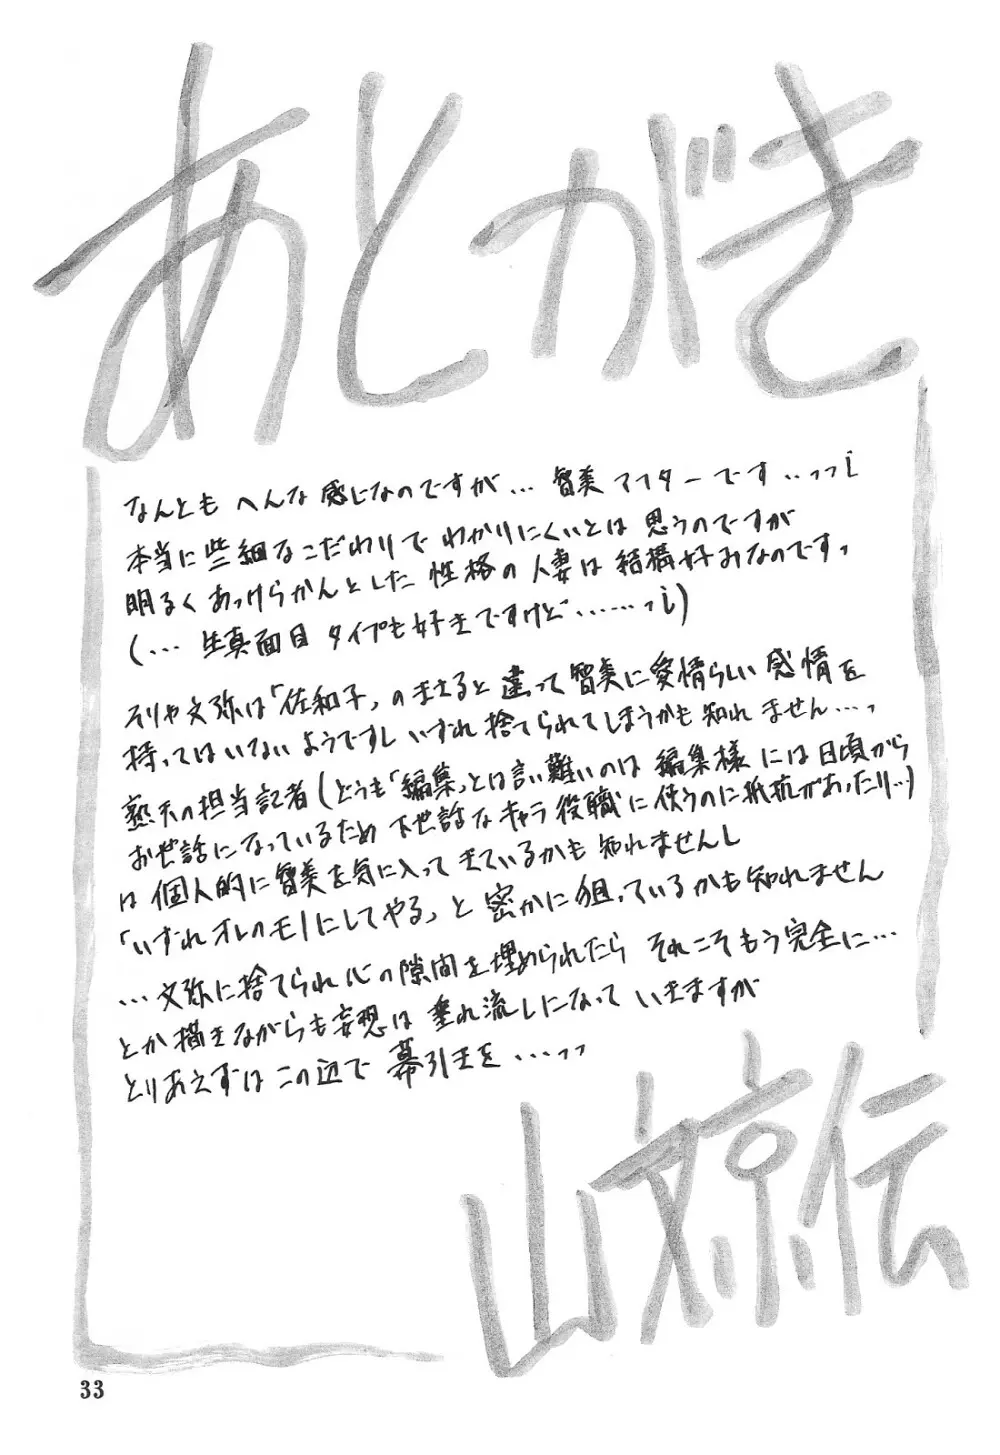 あとがき
なんとも へんな 感じなのですが… 智美 アフターです…っっ¡
本当に 些細なこだわりで わかりにくいとは 思うのですが
明るく あっけらかんとした 性格の 人妻は 結構好みなのです、
(… 生真面目 タイプも 好きですけど……っ¡)
そりゃ 文弥は「佐和子」の まさると 違って 智美に 愛情らしい 感情を
持ってはいない ようですし いずれ 捨てられてしまうかも 知れ ません…、
熟天の担当記者(どうも「編集」とは言い難いのは 編集様 には 日頃から
お世話になっているため 下世話な キャラ 役職に 使うのに抵抗があったり…)
は 個人的に 智美を気に入って きているかも 知れませんし
「いずれ オレのモノにしてやる」と 密かに 狙っているかも知れません
… 文弥に捨てられ 心の隙間を埋められたら それこそもう完全に…
とか描きながらも妄想は 垂れ流しになって いきますが
とりあえずは この辺で 幕引きを …っっ
山文京伝
33